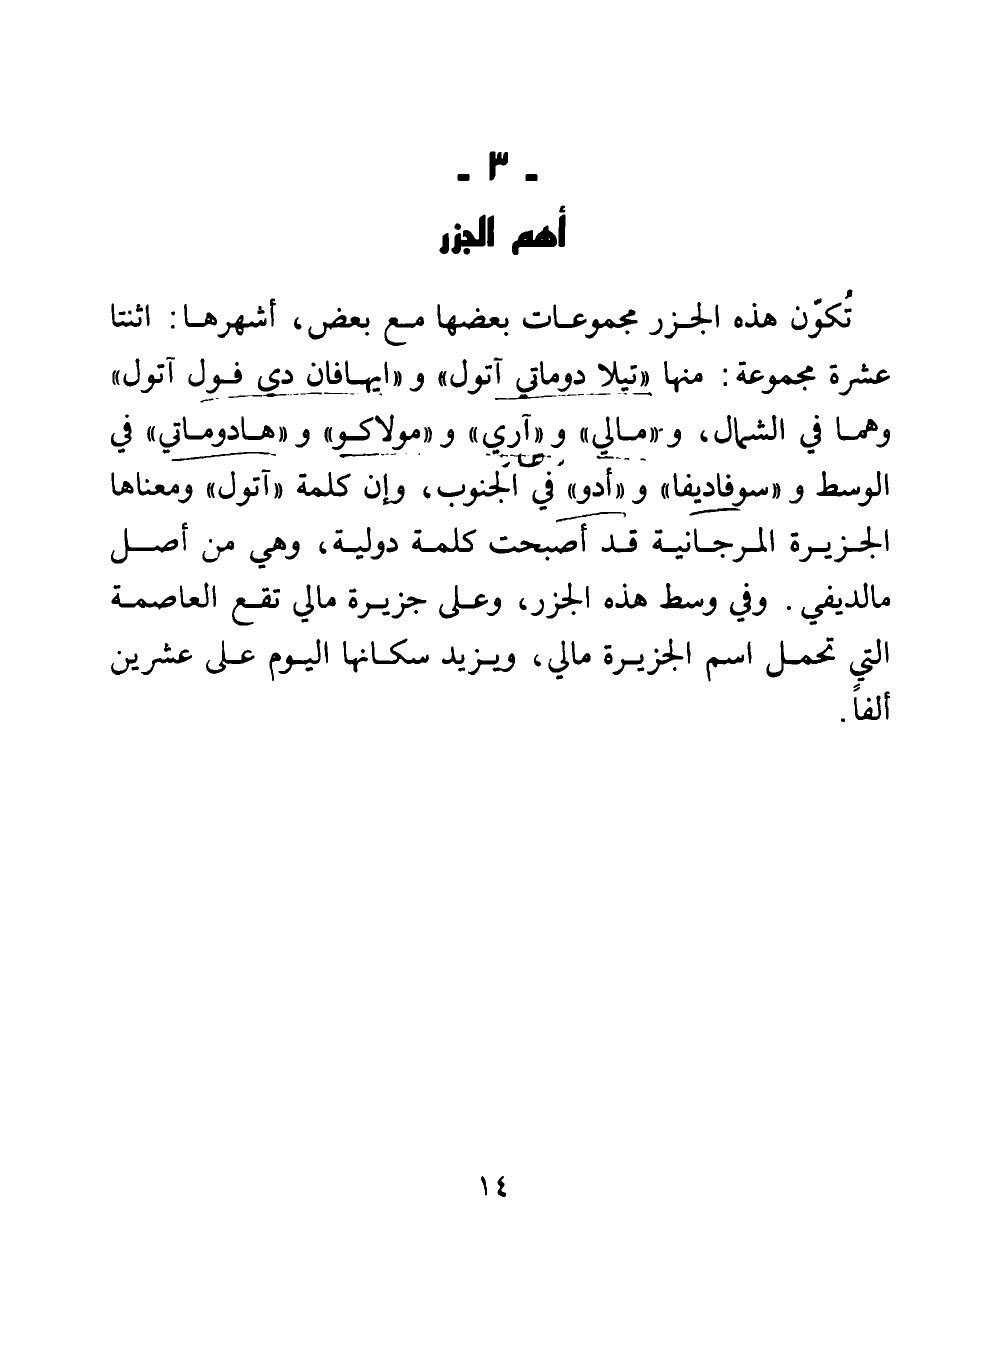 - ٣ -
أهم الجزر
تُكوّن هذه الجزر مجموعات بعضها مع بعض، أشهرها: اثنتا
عشرة مجموعة: منها «تيلا دوماتي آتول» و «ايهافان دي فول آتول»
وهما في الشمال، و «مالي» و «آري» و «مولاكو» و «هادوماتي» في
الوسط و «سوفاديفا» و «أدو» في الجنوب، وإن كلمة «آتول» ومعناها
الجزيرة المرجانية قد أصبحت كلمة دولية، وهي من أصل
مالديفي. وفي وسط هذه الجزر، وعلى جزيرة مالي تقع العاصمة
التي تحمل اسم الجزيرة مالي، ويزيد سكانها اليوم على عشرين
ألفاً.
١٤